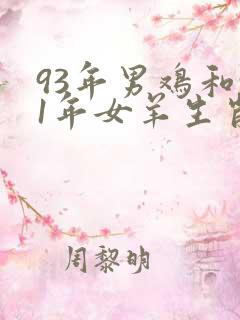 93年男鸡和
1年女羊生肖
周黎明